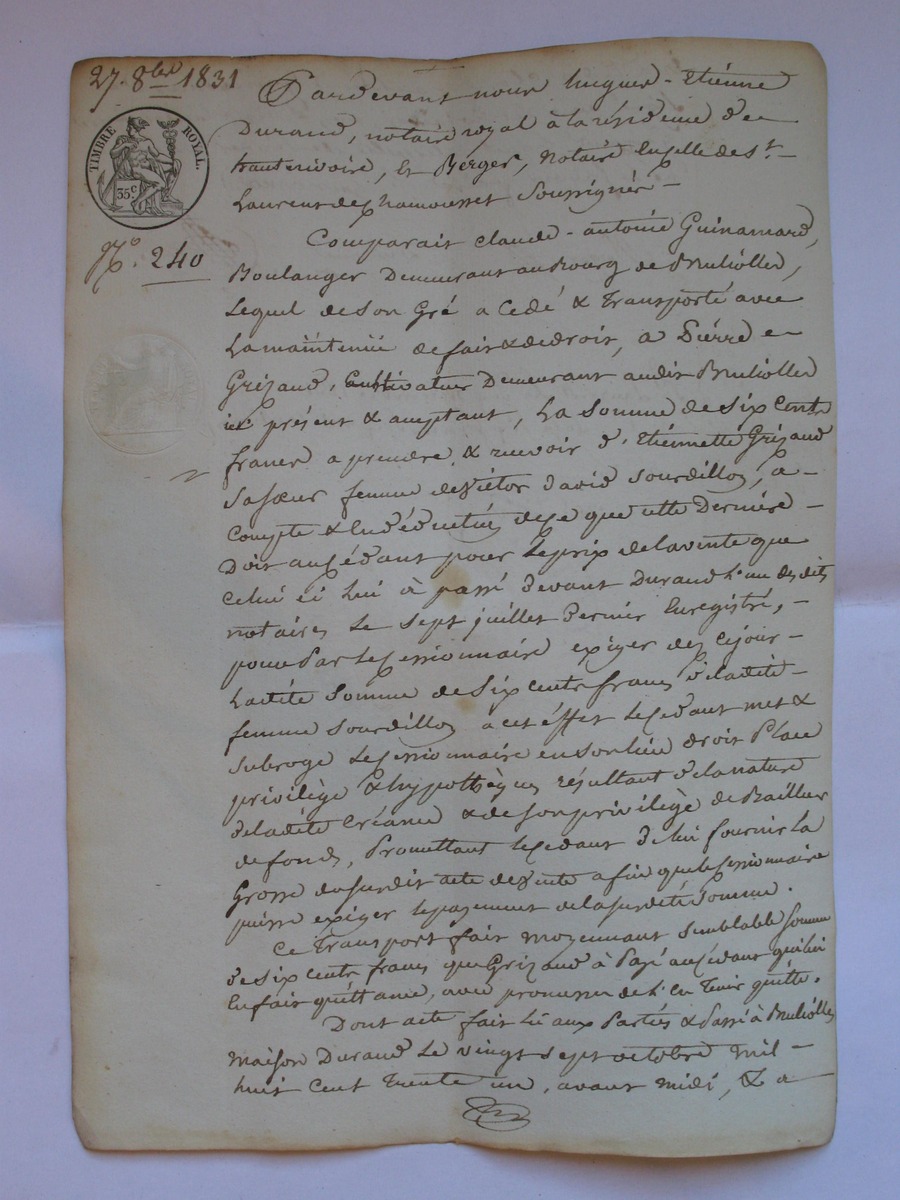 27. 8bre 1831
TIMBRE ROYAL.
35c
No. 240
Pardevant nous hugues-Etiénne
Durand, notaire royal à la résidence de
hauterivoire, & Berger, notaire en celle de St.
Laurent de chamousset soussignés
Comparait claude-antoine Guinamard,
Boulanger Demeurant au Bourg de Brulliolles,
Lequel de son Gré a Cedé & Transporté avec
La maintenüe de fait & de droit, a Piérre
Grizaud, cultivateur Demeurant audit Brulliolles
ici présent & acceptant, La somme de six cents
francs a prendre & recevoir d'Etiénnette Grizaud
sa sœur femme de Victor david Sourdillon, a
Compte & en déduction de ce que cette Derniére
Doit au cédant pour Le prix de la vente que
Celui ci Lui à passé devant Durand l'un desdits
notaires Le sept juillet dernier Enregistré,
pour Par Le cessionnaire exiger dez ce jour
Ladite somme de six cents francs de ladite
femme Sourdillon a cet éffet Le cédant met &
subroge Le cessionnaire en son lieu droit Place
privilège & hypothèques résultant de la nature
de ladite Créance & de son privilège de Bailleur
de fonds, Promettant Le cédant de lui fournir La
Grosse du susdit acte de vente afin que le cessionnaire
puisse exiger le payement de la susdite somme.
Ce Transport fait moyennant semblable somme
de six cents francs que Grizaud à Payé au cédant qui lui
En fait quittance, avec promesse de l'en Tenir quitte.
Dont acte fait Lu aux Partiés & Passé à Brulliolles
maison Durand Le vingt sept octobre mil
huit cent trente un, avant midi, & a